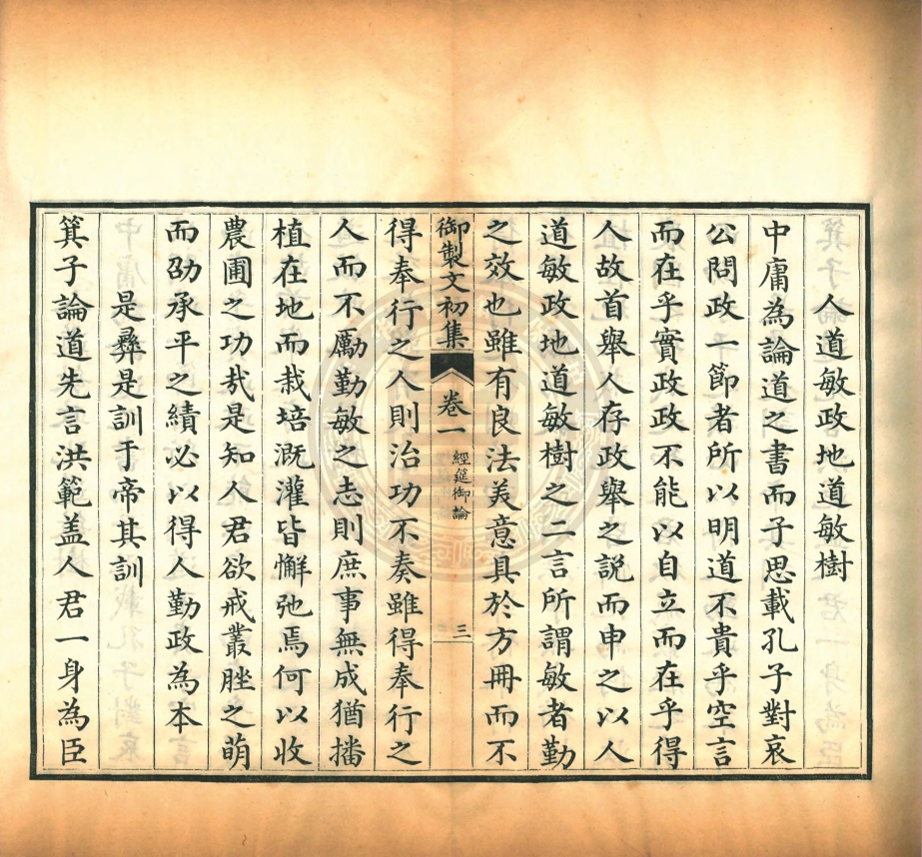 人道敏政地道敏樹
中庸為論道之書而子思載孔子對哀
公問政一節者所以明道不貴乎空言
而在乎實政政不能以自立而在乎得
人故首舉人存政舉之説而申之以人
道敏政地道敏樹之二言所謂敏者勤
之效也雖有良法美意具於方冊而不
御製文初集 卷一 經筵御論 三
得奉行之人則治功不奏雖得奉行之
人而不勵勤敏之志則庶事無成猶播
植在地而栽培溉灌皆懈弛焉何以收
農圃之功哉是知人君欲戒叢脞之萌
而劭承平之績必以得人勤政為本
是彝是訓于帝其訓
箕子論道先言洪範盖人君一身為臣